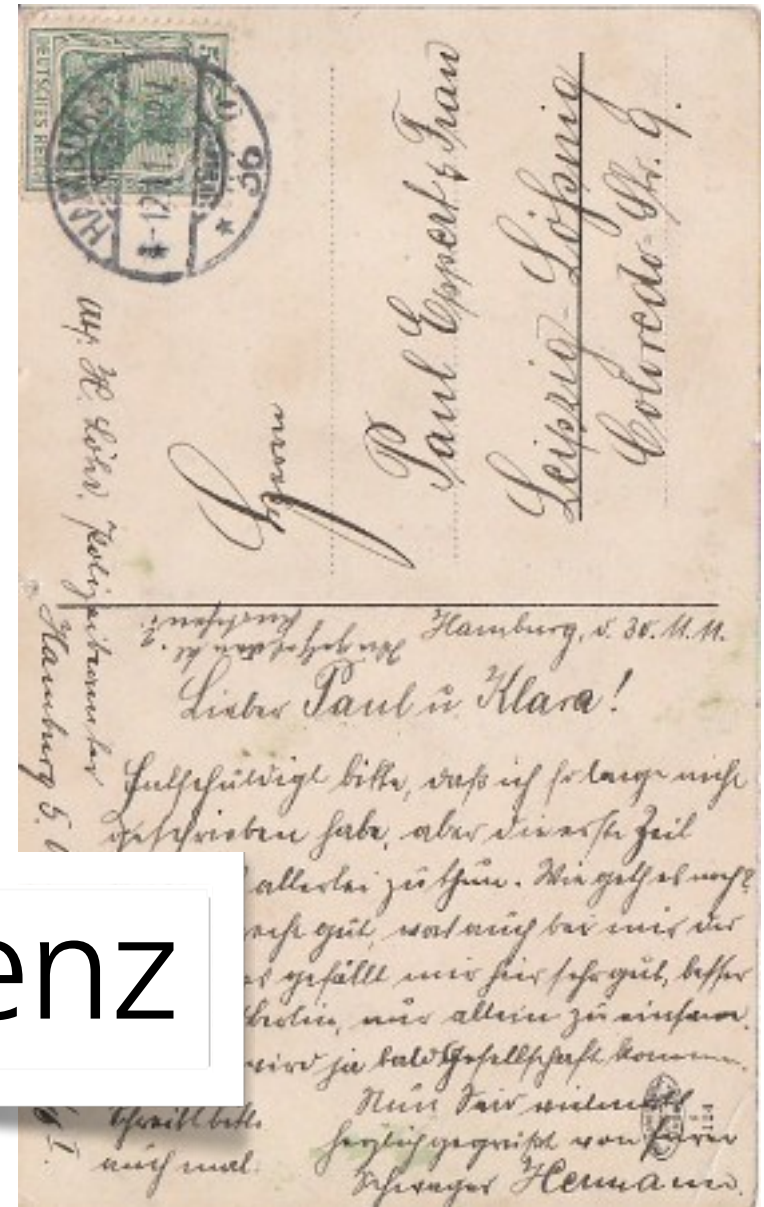 DEUTSCHES REICH
HAMBURG
-1.12.11.
Herrn
Paul Eppert & Frau
Leipzig-Lößnig
Coloredo-Str. 9.
Abs. H. Löhr. Polizeibeamter
Hamburg 5.
Hamburg, d. 30.11.11.
Lieber Paul u. Klara!
Entschuldigt bitte, daß ich so lange nicht
geschrieben habe, aber die erste Zeit
allerlei zu thun. Wie geht es noch?
recht gut, was auch bei mir der
es gefällt mir hier sehr gut, besser
Berlin, nur allein zu einsam.
wird ja bald Gesellschaft kommen.
Nun Seid vielmals
Schreibt bitte
herzlich gegrüßt von Eurer
auch mal.
Schwager Hermann.
enz